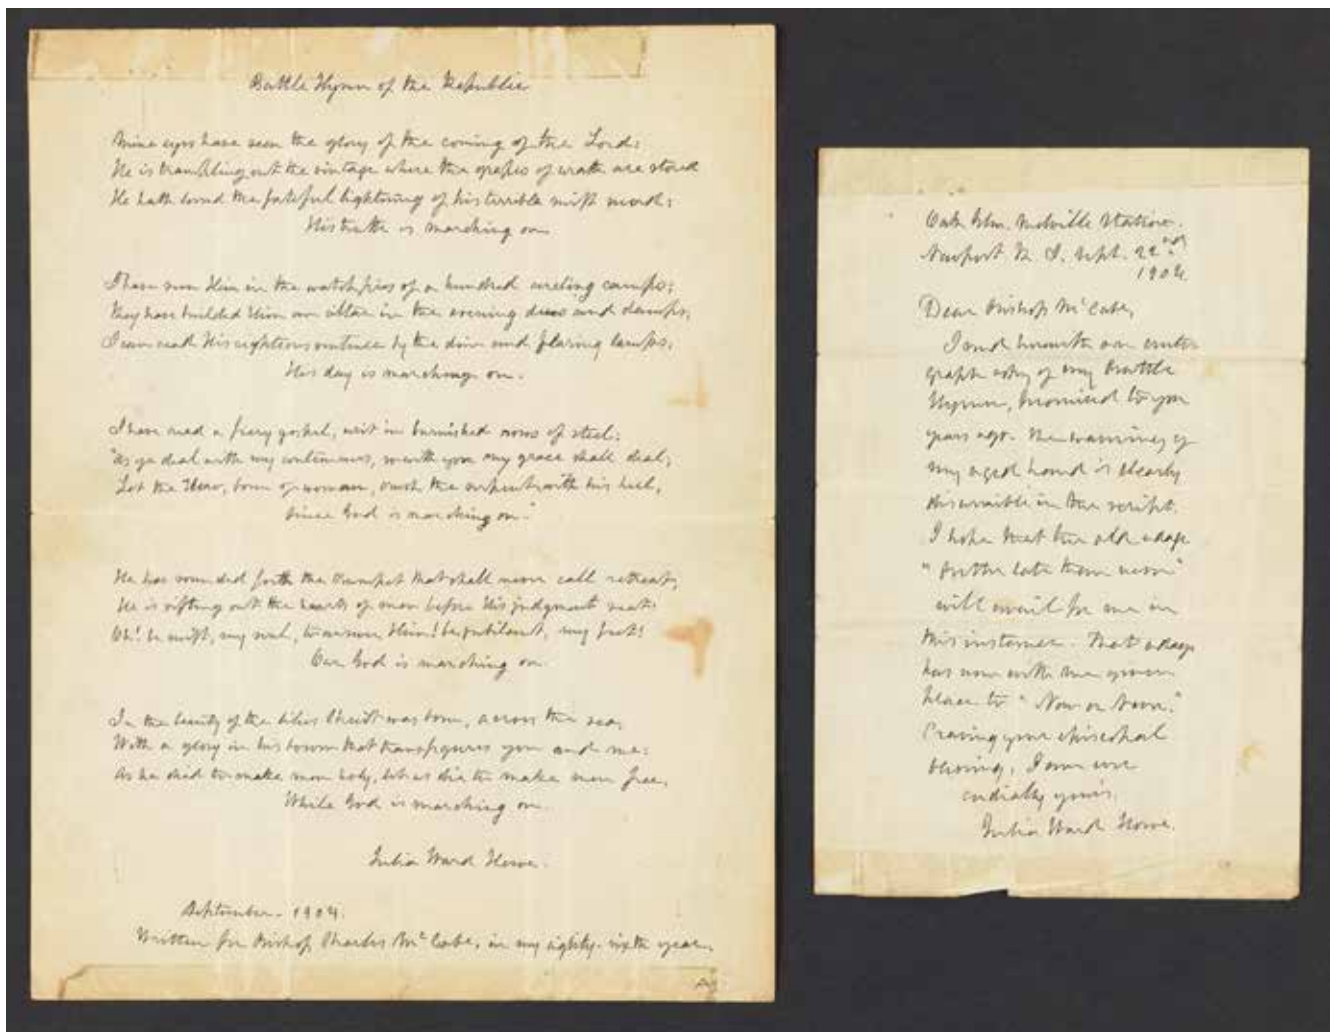 Battle Hymn of the Republic
Mine eyes have seen the glory of the coming of the Lord:
He is trampling out the vintage where the grapes of wrath are stored
He hath loosed the fateful lightning of his terrible swift sword:
His truth is marching on
I have seen Him in the watchfires of a hundred circling camps;
They have builded Him an altar in the evening dews and damps;
I can read His righteous sentence by the dim and flaring lamps,
His day is marching on.
I have read a fiery gospel, writ in burnished rows of steel:
"As ye deal with my contemners, so with you my grace shall deal;
Let the Hero, born of woman, crush the serpent with his heel,
Since God is marching on."
He has sounded forth the trumpet that shall never call retreat,
He is sifting out the hearts of men before His judgment seat:
Oh! be swift, my soul, to answer Him! be jubilant, my feet!
Our God is marching on.
In the beauty of the lilies Christ was born, across the sea,
With a glory in his bosom that transfigures you and me:
As he died to make men holy, let us die to make men free,
While God is marching on.
Julia Ward Howe.
September. 1904.
Written for Bishop Charles McCabe, in my eighty-sixth year.
Oak Glen. Melville Station.
Newport R. I. Sept. 22nd
1904
Dear Bishop McCabe,
I send herewith an auto
graph copy of my Battle
Hymn, promised to you
years ago. The of
my aged hand is clearly
discernible in the script.
I hope that the old adage
"better late than never"
will avail for me in
this instance. That adage
has now with me given
place to "Now or Never."
Craving your episcopal
blessing, I am
cordially yours.
Julia Ward Howe.